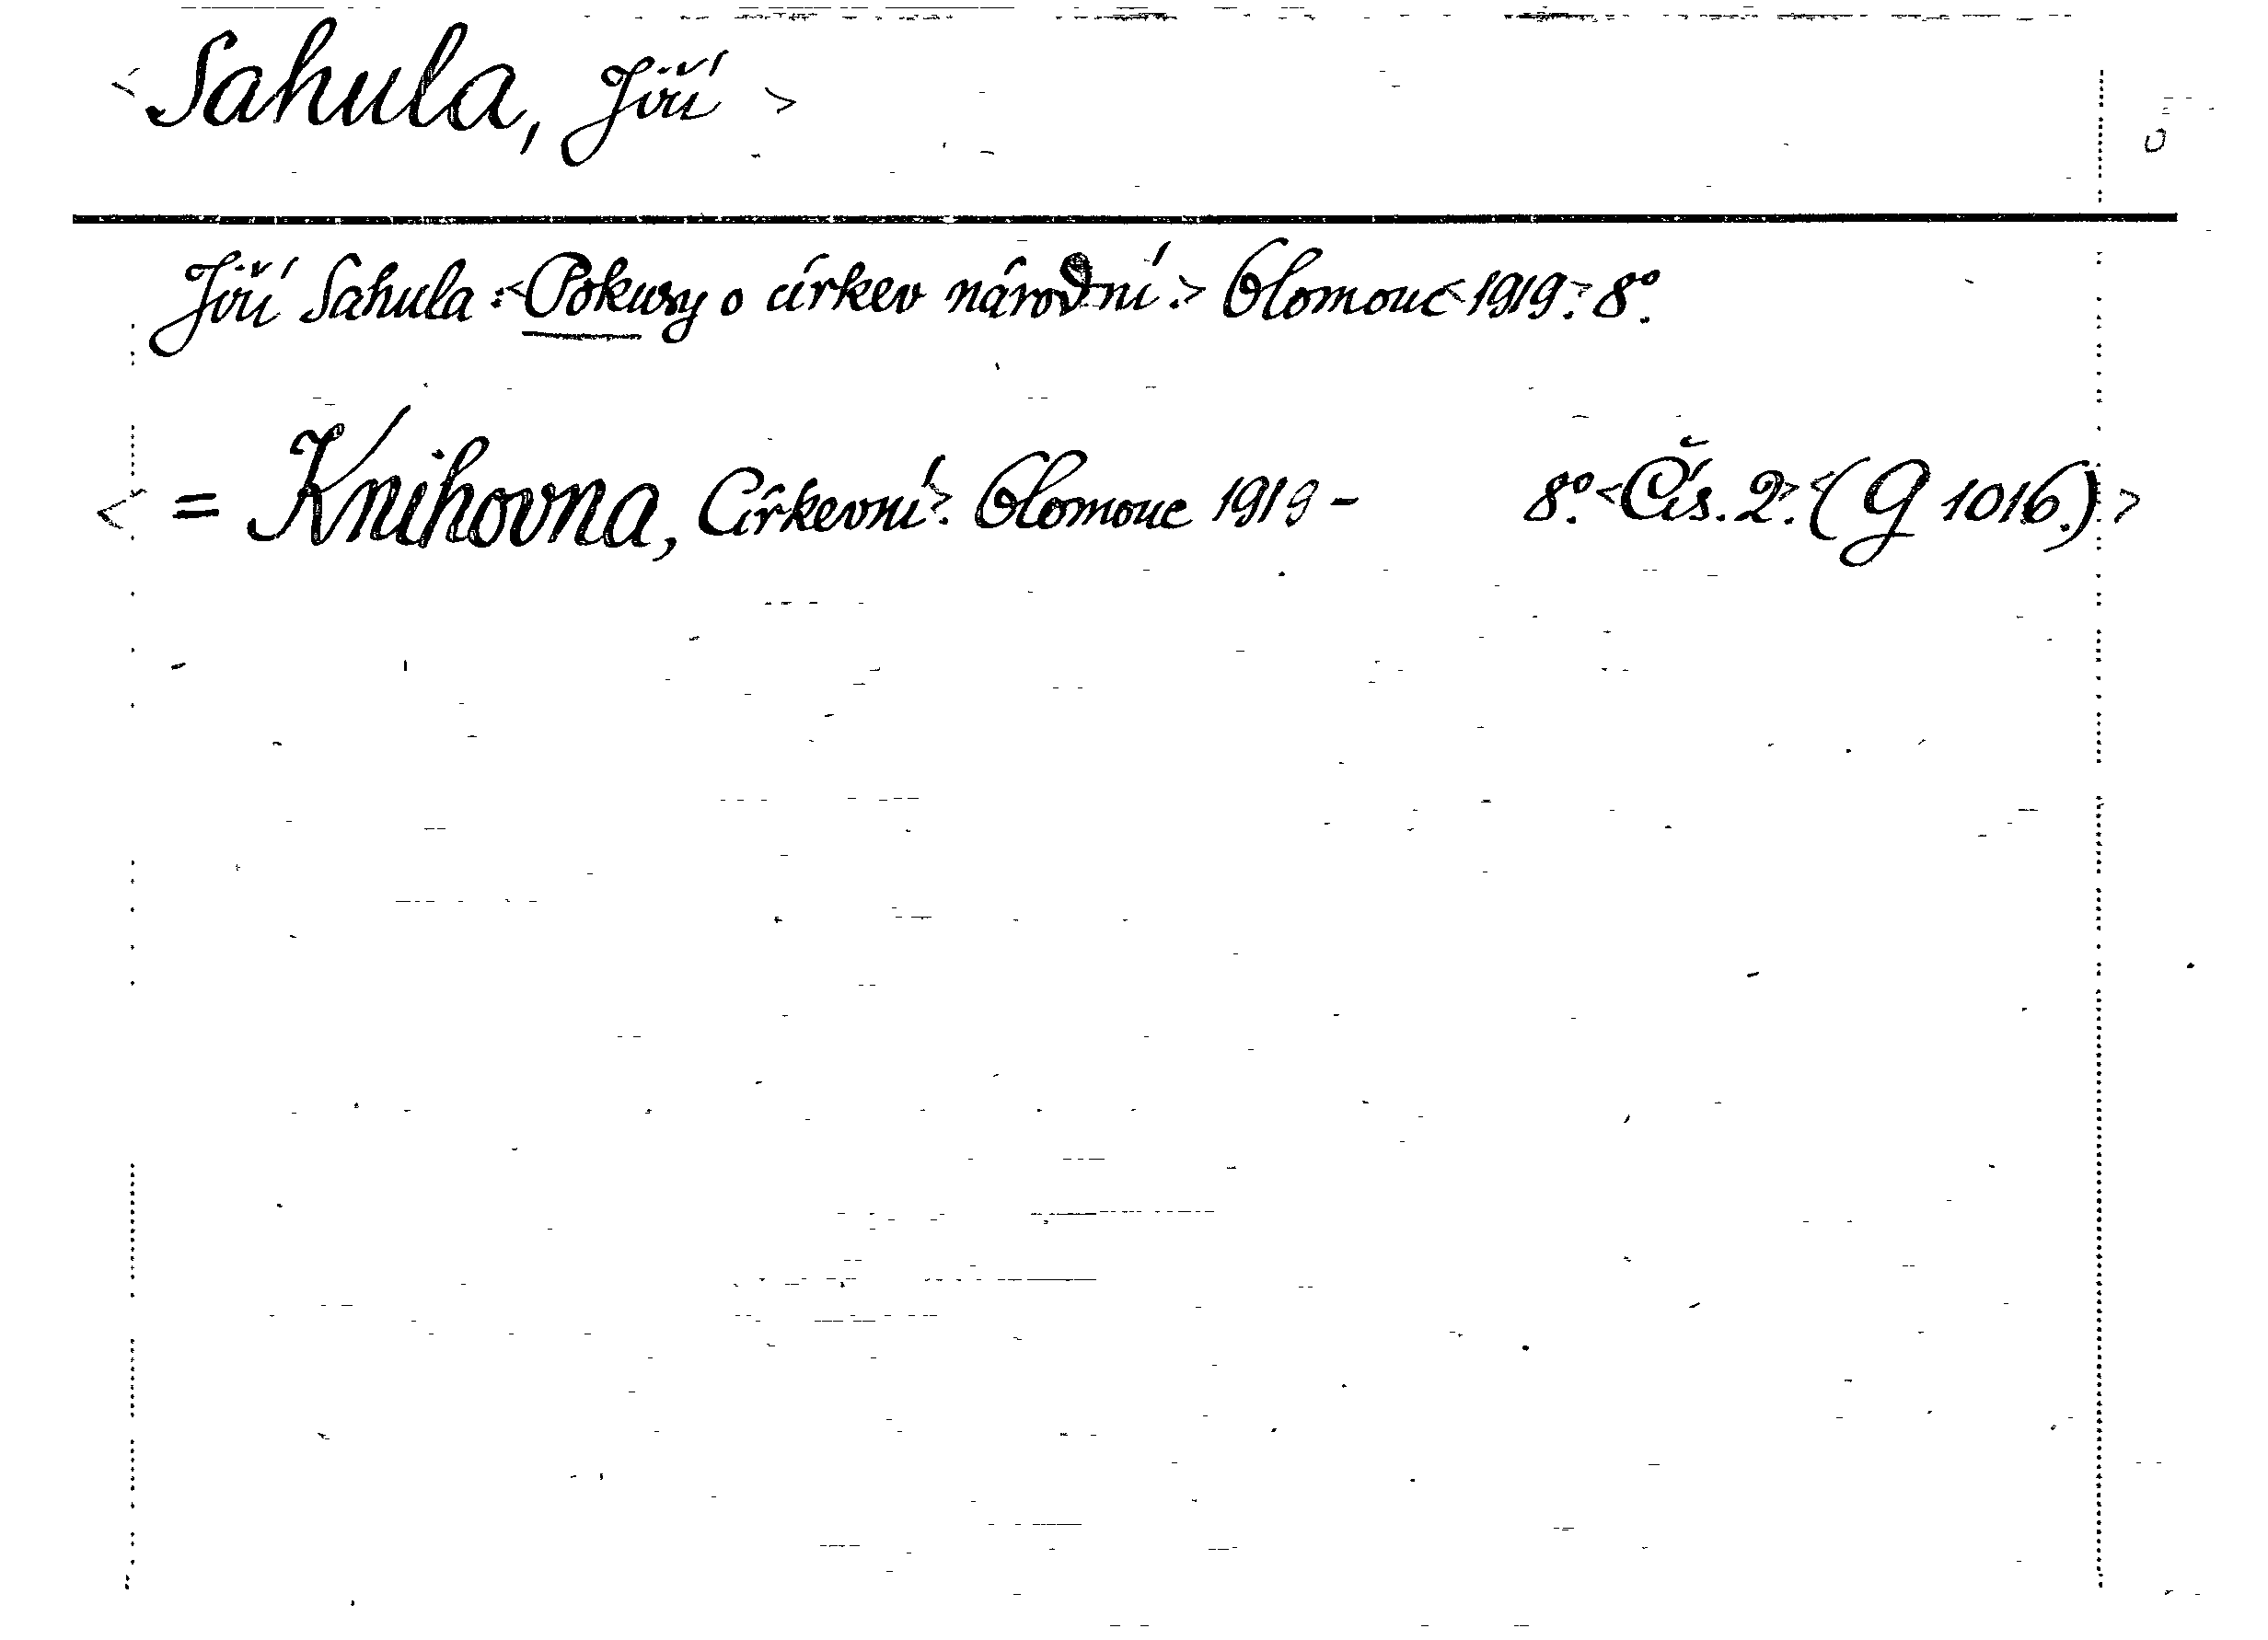 <Sahula, Jiří>
Jiří Sahula: <Pokusy o církev národní.> Olomouc <1919.> 8º.
<= Knihovna, Církevní>. Olomouc 1919 - 8º. <Čís. 2.> <(G 1016.)>